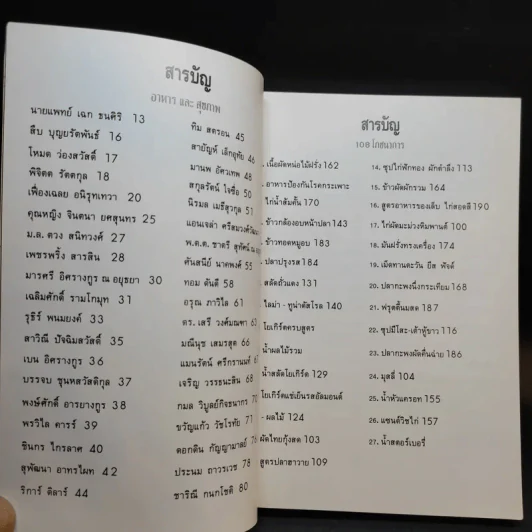 สารบัญ
อาหาร และ สุขภาพ
นายแพทย์ เฉก ธนะสิริ 13
สืบ บุญยรัตพันธ์ 16
โหมด ว่องสวัสดิ์ 17
พิจิตต รัตตกุล 18
เฟื่องเฉลย อนิรุทเทวา 20
คุณหญิง จินตนา ยศสุนทร 25
ม.ล. ตวง สนิทวงศ์ 27
เพชรพริ้ง สารสิน 28
มารศรี อิศรางกูร ณ อยุธยา 30
เฉลิมศักดิ์ รามโกมุท 31
รุธีร์ พนมยงค์ 33
สาวิณี ปัจฉิมสวัสดิ์ 35
เบน อิศรางกูร 36
บรรจบ ชุนหสวัสดิกุล 37
พงษ์ศักดิ์ อารยางกูร 38
พรวิไล คาร์ร์ 39
ชินกร ไกรลาศ 40
สุพัฒนา อาทรไผท 42
ริการ์ ดิลาร์ 44
ทิม สตรอน 45
สายัญห์ เล็กอุทัย 46
มานพ อัศวเทพ
สกุลรัตน์ ใจซื่อ 50
นิรมล เมธีสุวกุล 51
แอนเจล่า
พ.ต.ต. ชาตรี สุทัศน์ ณ
ศันสนีย์ นาคพงศ์ 55
ทอม ดันดี 58
อรุณ ภาวิไล 61
ดร. เสรี วงศ์มณฑา
มณีนุช เสมรสุต
แมนรัตน์ ศรีกรานนท์
เจริญ วรรธนะสิน
กมล วิบูลย์กิจธนากร 70
ขวัญแก้ว วัชโรทัย 71
ดอกดิน กัญญามาลย์
ประนม ถาวรเวช
ชาริณี กนกโชติ 80
สารบัญ
108 โภชนาการ
เนื้อผัดหน่อไม้ฝรั่ง 162
อาหารป้องกันโรคกระเพาะ
ไก่น้ำส้มคั้น 170
ข้าวกล้องอบหน้าปลา 143
ข้าวทอดหมูอบ 183
ปลาปรุงรส 184
สลัดถั่วแดง 151
ไลม่า - ทูน่าคัสโรล 140
โยเกิร์ตครบสูตร
น้ำผลไม้รวม
น้ำสลัดโยเกิร์ต 129
โยเกิร์ตแช่เย็นรสอัลมอนด์
- ผลไม้ 124
ผัดไทยกุ้งสด 103
สูตรปลาฮาวาย 109
14. ซุปไก่ฟักทอง ผักตำลึง 113
15. ข้าวผัดผักรวม 164
16. สูตรอาหารของเล็บ ไก่สอดสี 190
17. ไก่ผัดมะม่วงหิมพานต์ 100
18. มันฝรั่งทรงเครื่อง 174
19. เม็ดทานตะวัน ยีส พัฟด์
20. ปลากะพงนึ่งกระเทียม 168
21. ฟรุตตี้นมสด 187
22. ซุปมิโสะ-เต้าหู้ขาว 116
23. ปลากะพงผัดคื่นฉ่าย 186
24. มุสลี่ 104
25. น้ำหัวแครอท 155
26. แซนด์วิชไก่ 157
27. น้ำสตอร์เบอรี่